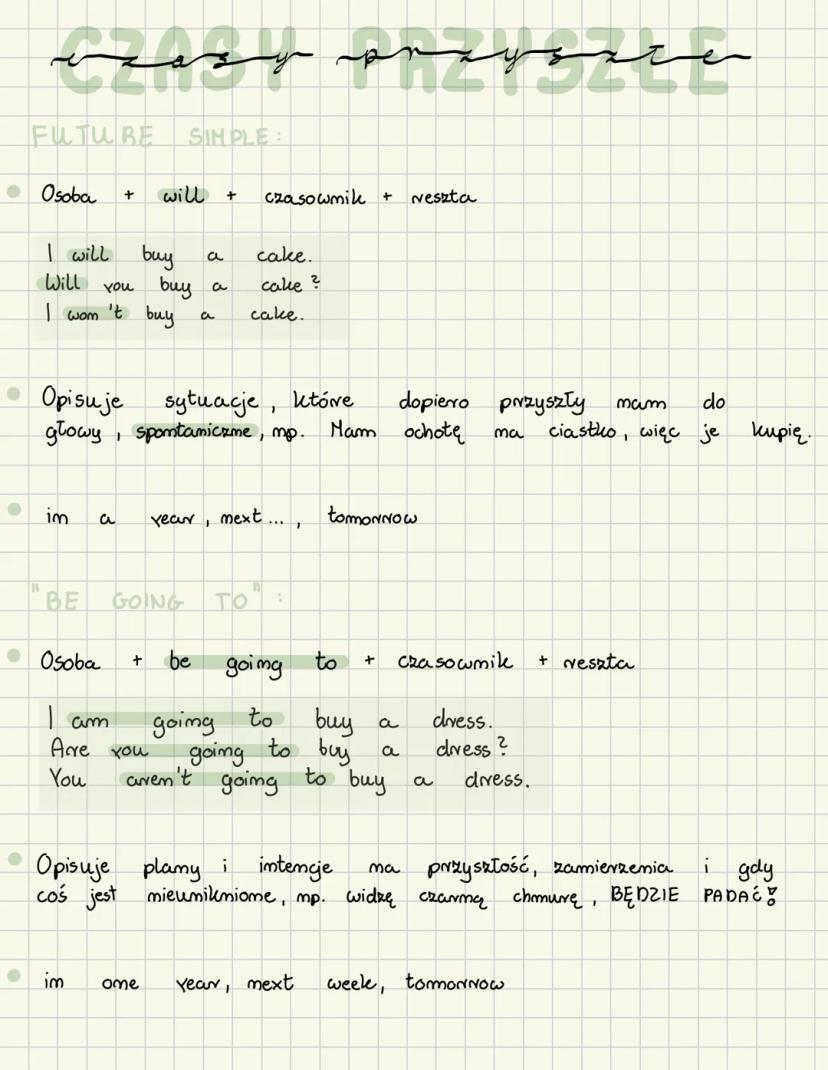 CZASY PRZYSZŁE
czasy przyszłe
FUTURE SIMPLE:
Osoba + will + czasownik + reszta
I will buy a cake.
Will you buy a cake?
I won't buy a cake.
Opisuje sytuacje, które dopiero przyszły nam do
głowy, spontaniczne, np. Mam ochotę na ciastko, więc je kupię.
in a year, next..., tomorrow
"BE GOING TO":
Osoba + be going to + czasownik + reszta
I am going to buy a dress.
Are you going to buy a dress?
You aren't going to buy a dress.
Opisuje plany i intencje na przyszłość, zamierzenia i gdy
coś jest nieuniknione, np. widzę czarną chmurę, BĘDZIE PADAĆ!
in one year, next week, tomorrow